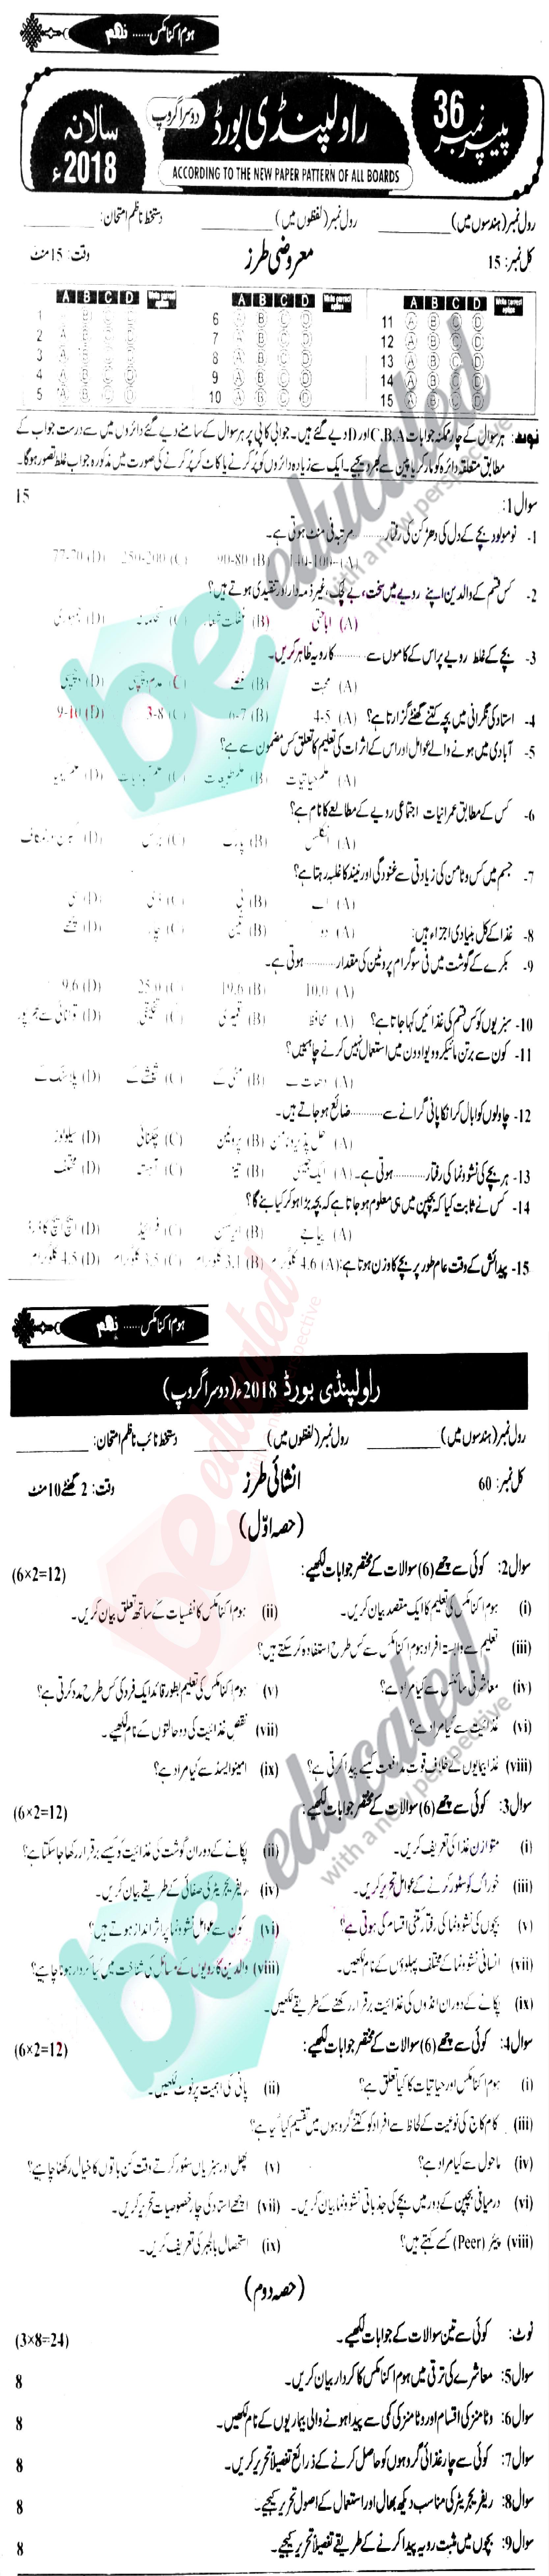 ہوم اکنامکس...... نہم
پیپر نمبر 36
راولپنڈی بورڈ
دوسرا گروپ
سالانہ 2018ء
ACCORDING TO THE NEW PAPER PATTERN OF ALL BOARDS
رول نمبر (ہندسوں میں) ________ رول نمبر (لفظوں میں) ________ دستخط ناظم امتحان: ________
کل نمبر: 15 معروضی طرز وقت: 15 منٹ
A B C D Write correct option A B C D Write correct option A B C D Write correct option
1 A B C D 6 A B C D 11 A B C D
2 A B C D 7 A B C D 12 A B C D
3 A B C D 8 A B C D 13 A B C D
4 A B C D 9 A B C D 14 A B C D
5 A B C D 10 A B C D 15 A B C D
نوٹ: ہر سوال کے چار ممکنہ جوابات C,B,A اور D دیے گئے ہیں۔ جوابی کاپی پر ہر سوال کے سامنے دیے گئے دائروں میں سے درست جواب کے
مطابق متعلقہ دائرہ کو مارکر یا پین سے بھر دیجیے۔ ایک سے زیادہ دائروں کو پُر کرنے یا کاٹ کر پُر کرنے کی صورت میں مذکورہ جواب غلط تصور ہوگا۔
سوال 1: 15
1- نومولود بچے کے دل کی دھڑکن کی رفتار ........ مرتبہ فی منٹ ہوتی ہے۔
(A) 140-100 (B) 90-80 (C) 250-200 (D) 77-70
2- کس قسم کے والدین اپنے رویے میں سخت، بے لچک، غیر ذمہ دار اور تنقیدی ہوتے ہیں؟
(A) اباحتی (B) (C) تحکمانہ (D) جمہوری
3- بچے کے غلط رویے پر اس کے کاموں سے ........ کا رویہ ظاہر کریں۔
(A) محبت (B) غصے (C) عدم دلچسپی (D) دلچسپی
4- استاد کی نگرانی میں بچہ کتنے گھنٹے گزارتا ہے؟ (A) 4-5 (B) 6-7 (C) 3-8 (D) 9-10
5- آبادی میں ہونے والے عوامل اور اس کے اثرات کی تعلیم کا تعلق کس مضمون سے ہے؟
(A) علم حیاتیات (B) علم طبیعات (C) (D) علم کیمیا
6- کس کے مطابق عمرانیات اجتماعی رویے کے مطالعے کا نام ہے؟
(A) (B) پارک (C) (D)
7- جسم میں کس وٹامن کی زیادتی سے غنودگی اور نیند کا غلبہ رہتا ہے؟
(A) اے (B) بی (C) ڈی (D) سی
8- غذا کے کل بنیادی اجزاء ہیں: (A) دو (B) تین (C) چار (D) چھے
9- بکرے کے گوشت میں فی سو گرام پروٹین کی مقدار ........ ہوتی ہے۔
(A) 10.0 (B) 19.6 (C) 25.0 (D) 9.6
10- سبزیوں کو کس قسم کی غذائیں کہا جاتا ہے؟ (A) محافظ (B) تعمیری (C) تخلیقی (D) توانائی سے بھرپور
11- کون سے برتن مائیکرو ویو اوون میں استعمال نہیں کرنے چاہئیں؟
(A) دھات کے (B) مٹی کے (C) شیشے کے (D) پلاسٹک کے
12- چاولوں کو ابال کر انکا پانی گرانے سے ........ ضائع ہو جاتے ہیں۔
(A) حل پذیر وٹامن (B) پروٹین (C) چکنائی (D) سیلولوز
13- ہر بچے کی نشوونما کی رفتار ........ ہوتی ہے۔ (A) ایک جیسی (B) تیز (C) آہستہ (D) مختلف
14- کس نے ثابت کیا کہ بچپن میں ہی معلوم ہو جاتا ہے کہ بچہ بڑا ہو کر کیا بنے گا؟
(A) پیاجے (B) ایرکسن (C) فرائیڈ (D)
15- پیدائش کے وقت عام طور پر بچے کا وزن ہوتا ہے: (A) 4.6 کلوگرام (B) 3.1 کلوگرام (C) 3.5 کلوگرام (D) 4.5 کلوگرام
ہوم اکنامکس...... نہم
راولپنڈی بورڈ 2018ء (دوسرا گروپ)
رول نمبر (ہندسوں میں) ________ رول نمبر (لفظوں میں) ________ دستخط نائب ناظم امتحان: ________
کل نمبر: 60 انشائی طرز وقت: 2 گھنٹے 10 منٹ
(حصہ اوّل)
سوال 2: کوئی سے چھے (6) سوالات کے مختصر جوابات لکھیے: (6×2=12)
(i) ہوم اکنامکس کی تعلیم کا ایک مقصد بیان کریں۔ (ii) ہوم اکنامکس کا نفسیات کے ساتھ تعلق بیان کریں۔
(iii) تعلیم سے وابستہ افراد ہوم اکنامکس سے کس طرح استفادہ کر سکتے ہیں؟
(iv) معاشرتی سائنس سے کیا مراد ہے؟ (v) ہوم اکنامکس کی تعلیم بطور قائد ایک فرد کی کس طرح مدد کرتی ہے؟
(vi) غذائیت سے کیا مراد ہے؟ (vii) نقص غذائیت کی دو حالتوں کے نام لکھیے۔
(viii) غذا بیماریوں کے خلاف قوت مدافعت کیسے پیدا کرتی ہے؟ (ix) امینو ایسڈ سے کیا مراد ہے؟
سوال 3: کوئی سے چھے (6) سوالات کے مختصر جوابات لکھیے: (6×2=12)
(i) متوازن غذا کی تعریف کریں۔ (ii) پکانے کے دوران گوشت کی غذائیت کو کیسے برقرار رکھا جا سکتا ہے؟
(iii) خوراک کو سٹور کرنے کے عوامل تحریر کریں۔ (iv) ریفریجریٹر کی صفائی کے طریقے بیان کریں۔
(v) بچوں کی نشوونما کی رفتار کتنی اقسام کی ہوتی ہے؟ (vi) کون سے عوامل نشوونما پر اثر انداز ہوتے ہیں؟
(vii) انسانی نشوونما کے مختلف پہلوؤں کے نام لکھیں۔ (viii) والدین کا رویوں کے مسائل کی شناخت میں کیا کردار ہونا چاہیے؟
(ix) پکانے کے دوران انڈوں کی غذائیت برقرار رکھنے کے طریقے لکھیں۔
سوال 4: کوئی سے چھے (6) سوالات کے مختصر جوابات لکھیے: (6×2=12)
(i) ہوم اکنامکس اور حیاتیات کا کیا تعلق ہے؟ (ii) پانی کی اہمیت پر نوٹ لکھیں۔
(iii) کام کاج کی نوعیت کے لحاظ سے افراد کو کتنے گروہوں میں تقسیم کیا گیا ہے؟
(iv) ماحول سے کیا مراد ہے؟ (v) پھل اور سبزیاں سٹور کرتے وقت کن باتوں کا خیال رکھنا چاہیے؟
(vi) درمیانی بچپن کے دور میں بچے کی جذباتی نشوونما بیان کریں۔ (vii) اچھے استاد کی چار خصوصیات تحریر کریں۔
(viii) پیئر (Peer) کسے کہتے ہیں؟ (ix) استحصال بالجبر کی تعریف کریں۔
(حصہ دوم)
نوٹ: کوئی سے تین سوالات کے جوابات لکھیے۔ (3×8=24)
سوال 5: معاشرے کی ترقی میں ہوم اکنامکس کا کردار بیان کریں۔ 8
سوال 6: وٹامنز کی اقسام اور وٹامنز کی کمی سے پیدا ہونے والی بیماریوں کے نام لکھیں۔ 8
سوال 7: کوئی سے چار غذائی گروہوں کو حاصل کرنے کے ذرائع تفصیلاً تحریر کریں۔ 8
سوال 8: ریفریجریٹر کی مناسب دیکھ بھال اور استعمال کے اصول تحریر کیجیے۔ 8
سوال 9: بچوں میں مثبت رویہ پیدا کرنے کے طریقے تفصیلاً تحریر کیجیے۔ 8
be educated
with a new perspective
be educated
be educated
with a new perspective